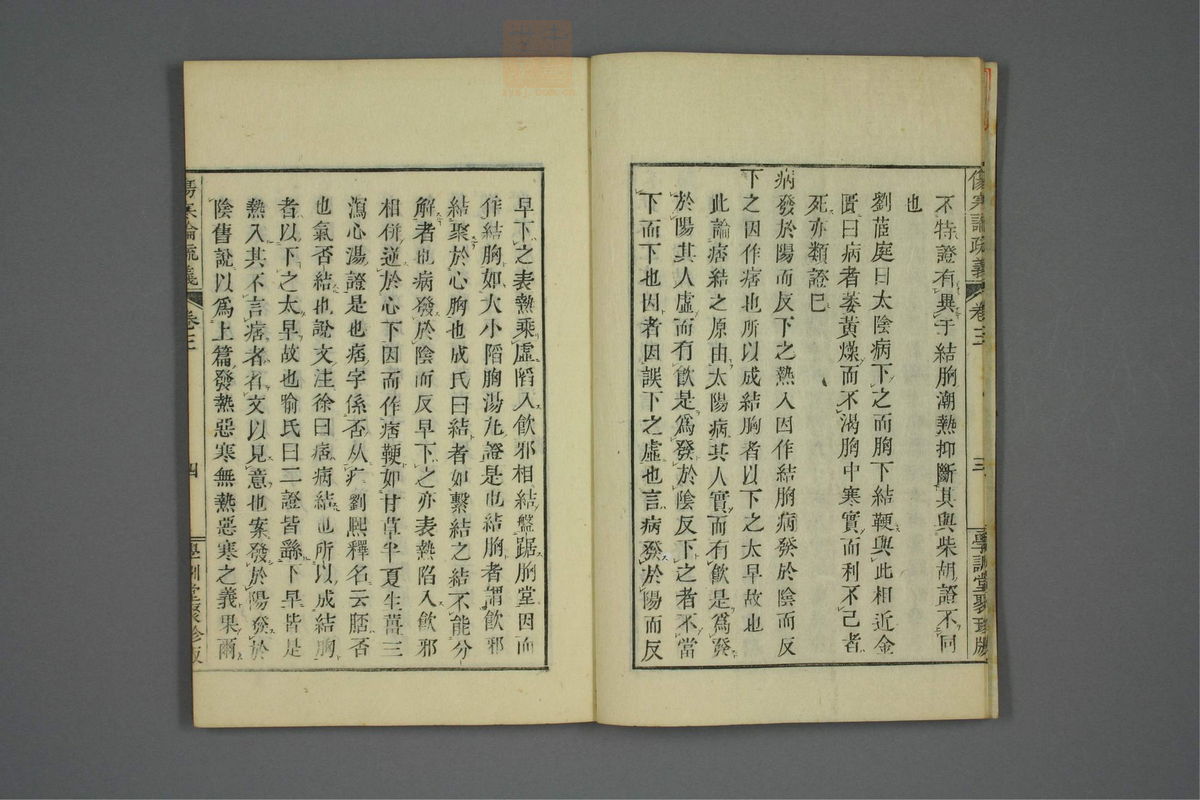 傷寒論疏義 卷三 三 學訓堂聚珍版
不特證有異于結胸潮熱抑斷其與柴胡證不同
也
劉茝庭曰太陰病下之而胸下結鞕與此相近金
匱曰病者萎黃燥而不渴胸中寒實而利不已者
死亦類證已
病發於陽而反下之熱入因作結胸病發於陰而反
下之因作痞也所以成結胸者以下之太早故也
此論痞結之原由太陽病其人實而有飲是爲發
於陽其人虛而有飲是爲發於陰反下之者不當
下而下也因者因誤下之虛也言病發於陽而反
早下之表熱乘虛陷入飲邪相結盤踞胸堂因而
作結胸如大小陷胸湯丸證是也結胸者謂飲邪
結聚於心胸也成氏曰結者如繫結之結不能分
解者也病發於陰而反早下之亦表熱陷入飲邪
相併逆於心下因而作痞鞕如甘草半夏生薑三
瀉心湯證是也痞字係否从疒劉熙釋名云脴否
也氣否結也說文注徐曰痞病結也所以成結胸
者以下之太早故也喻氏曰二證皆繇下早皆是
熱入其不言痞者省文以見意也案發於陽發於
陰舊說以爲上篇發熱惡寒無熱惡寒之義果爾
傷寒論疏義 卷三 四 學訓堂聚珍版